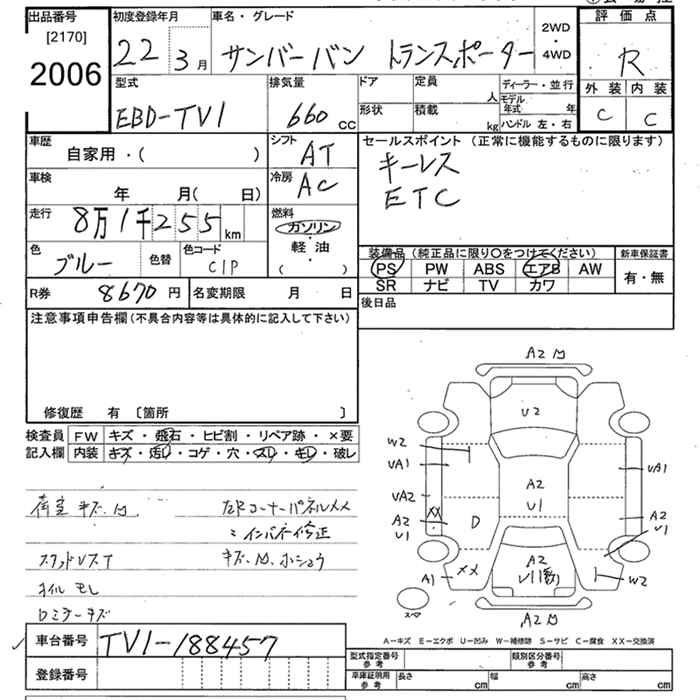 出品番号
[2170]
2006
初度登録年月
22 3月
車名・グレード
サンバーバン トランスポーター
2WD
・
4WD
評価点
R
外装 内装
C C
型式
EBD-TV1
排気量
660 CC
ドア
形状
定員 人
積載 kg
ディーラー・並行
モデル年式 年
ハンドル 左・右
車歴
自家用・( )
シフト
AT
車検
年 月(日)
冷房
AC
走行
8万1千255 km
燃料
ガソリン
軽・油
( )
色
ブルー
色替
色コード
C1P
セールスポイント (正常に機能するものに限ります)
キーレス
ETC
装備品 (純正品に限り〇をつけてください)
PS PW ABS エアB AW
SR ナビ TV カワ
新車保証書
有・無
R券 8670円
名変期限 月 日
後日品
注意事項申告欄 (不具合内容等は具体的に記入して下さい)
修復歴 有 〔箇所 〕
検査員記入欄
FW キズ・飛石・ヒビ割・リペア跡・×要
内装 キズ・汚れ・コゲ・穴・スレ・キレ・破レ
荷室 キズ、凹
左Rコーナーパネルメメ
ミインパネイ修正
スタッドレスT
キズ、凹、ホショウ
オイルモレ
ロミラーキズ
A2 凹
U2
W2
UA1
UA1
A2
U1
UA2
XX
A2
U1
D
A2
U1
A1
XX
A2
W2
A2 凹
A－キズ E－エクボ U－凹み W－補修跡 S－サビ C－腐食 XX－交換済
車台番号
TV1-188457
登録番号
型式指定番号
参考
類別区分番号
参考
車庫証明用
参考
長さ cm
幅 cm
高さ cm